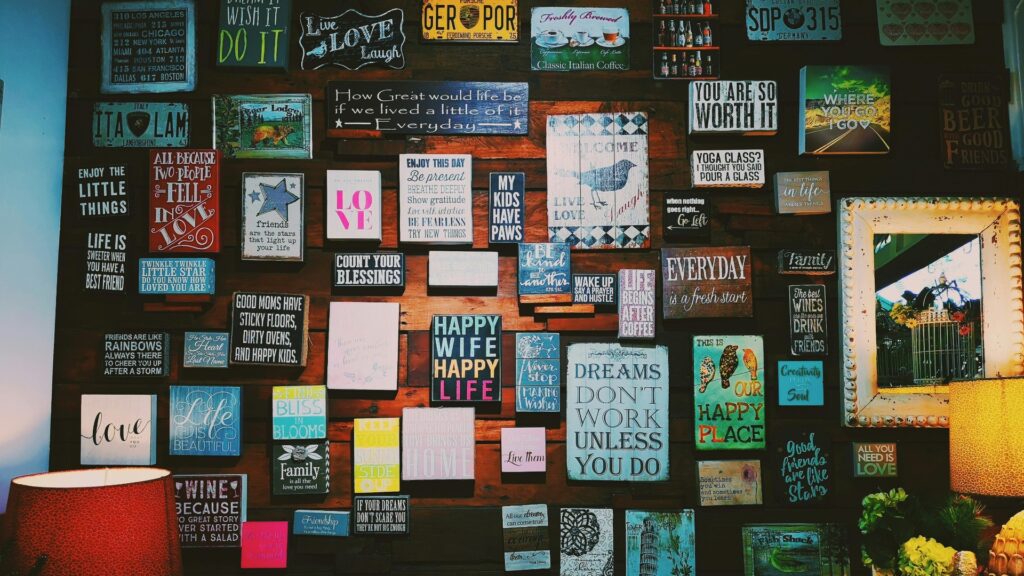 310 LOS ANGELES
312 CHICAGO
212 NEW YORK
305 MIAMI
713 HOUSTON
415 SAN FRANCISCO
DALLAS
DREAM IT
WISH IT
DO IT
Live
LOVE
Laugh
GER POR
Freshly Brewed
Classic Italian Coffee
SDP 315
GERMANY
ITALY
ITA LAM
How Great would life be
if we lived a little of it
Everyday
YOU ARE SO
WORTH IT
WHERE
DO YOU
GO?
DRINK
GOOD
BEER
GOOD
Friends
ENJOY THE
LITTLE
THINGS
ALL BECAUSE
TWO PEOPLE
FELL
IN
LOVE
friends
are the stars
that light up
your life
LO
VE
ENJOY THIS DAY
Be present
BREATHE DEEPLY
Show gratitude
Live with intention
BE FEARLESS
TRY NEW THINGS
MY
KIDS
HAVE
PAWS
WELCOME
LIVE
LOVE
Laugh
YOGA CLASS?
I THOUGHT YOU SAID
POUR A GLASS
when
nothing
goes right..
Go Left
THE BEST THINGS
in life
AREN'T THINGS
LIFE IS
SWEETER
WHEN
YOU HAVE A
BEST FRIEND
TWINKLE TWINKLE
LITTLE STAR
DO YOU KNOW HOW
LOVED YOU ARE
COUNT YOUR
BLESSINGS
BE
kind
and
another
WAKE UP
SAY A PRAYER
AND HUSTLE
LIFE
BEGINS
AFTER
COFFEE
EVERYDAY
is a fresh start
Family
GOOD MOMS HAVE
STICKY FLOORS,
DIRTY OVENS,
AND HAPPY KIDS
HAPPY
WIFE
HAPPY
LIFE
Never
stop
MAKING
Wishes
The best
WINES
are the ones
we
DRINK
with
FRIENDS
FRIENDS ARE LIKE
RAINBOWS
ALWAYS THERE
TO CHEER YOU UP
AFTER A STORM
DREAMS
DON'T
WORK
UNLESS
YOU DO
THIS IS
OUR
HAPPY
PLACE
Creativity
Soul
love
Life
IS
BEAUTIFUL
BLISS
BLOOMS
Family
is all the love
you need
YOUR
SIDE
LOVE BRINGS US
HOME
Live them
Sometimes
you win and
sometimes you learn
Good
Friends
are like
Stars
ALL YOU
NEED IS
LOVE
WINE
BECAUSE
NO GREAT STORY
EVER STARTED
WITH A
SALAD
Friendship
IF YOUR DREAMS
DON'T SCARE YOU
THEY'RE NOT BIG ENOUGH
All our dreams
can come true